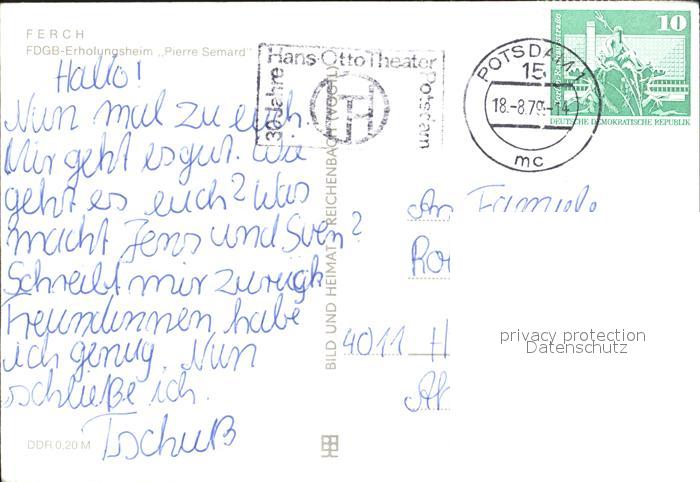 FERCH
FDGB-Erholungsheim „Pierre Semard"
Hallo!
Nun mal zu euch.
Mir geht es gut. Wie
geht es euch? Was
macht Jens und Sven?
Schreibt mir zurügk
Freundinnen habe
ich genug. Nun
schließe ich.
Tschuß
DDR 0,20 M
BILD UND HEIMAT REICHENBACH (VOGTL)
30 Jahre
Hans-Otto Theater
Potsdam
HOT
POTSDAM 1
15
18.-8.79.-14
mc
10
DEUTSCHE DEMOKRATISCHE REPUBLIK
An Familie
4011 H
privacy protection
Datenschutz